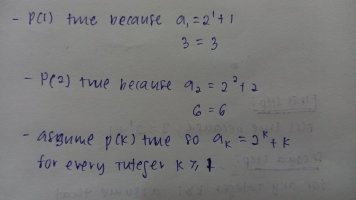 - P(1) true because a₁ = 2¹ + 1
3 = 3
- P(2) true because a₂ = 2² + 2
6 = 6
- assume P(k) true so aₖ = 2ᵏ + k
for every integer k ≥ 1